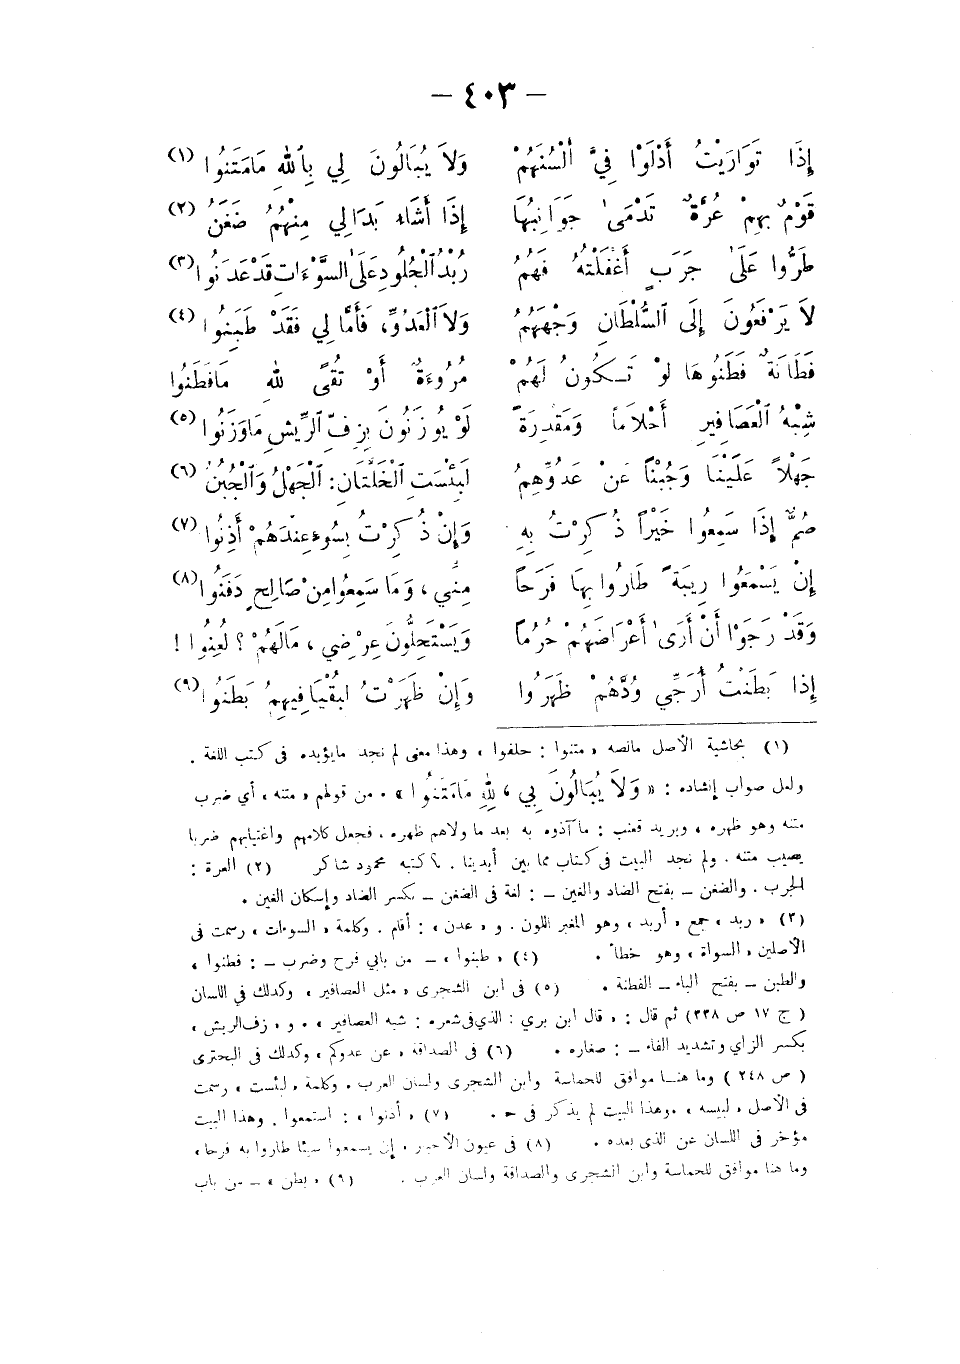 — ٤٠٣ —
إِذَا تَوَارَيْتُ أَدْلَوْا فِيَّ أَلْسُنَهُمْ وَلَا يُبَالُونَ لِي بِاللهِ مَامَتَنُوا (١)
قَوْمٌ بِهِمْ عُرَّةٌ تَدْمَىٰ جَوَانِبُهَا إِذَا أَشَاءُ بَدَا لِي مِنْهُمُ ضَغَنُ (٢)
طَرُّوا عَلَىٰ جَرَبٍ أَغْفَلْتُهُ فَهُمُ رُبْدُ الْجُلُودِ عَلَى السَّوْءَاتِ قَدْ عَدَنُوا (٣)
لَا يَرْفَعُونَ إِلَى السُّلْطَانِ وَجْهَهُمُ وَلَا الْعَدُوِّ، فَأَمَّا لِي فَقَدْ طَبَنُوا (٤)
فَطَانَةٌ فَطَنُوهَا لَوْ تَكُونُ لَهُمْ مُرُوءَةٌ أَوْ تُقًى للهِ مَافَطَنُوا
شِبْهُ الْعَصَافِيرِ أَحْلَاماً وَمَقْدِرَةً لَوْ يُوزَنُونَ بِزِفِّ الرِّيشِ مَاوَزَنُوا (٥)
جَهْلاً عَلَيْنَا وَجُبْناً عَنْ عَدُوِّهِمُ لَبِئْسَتِ الْخَلَّتَانِ: الْجَهْلُ وَالْجُبُنُ (٦)
صُمٌّ إِذَا سَمِعُوا خَيْراً ذُكِرْتُ بِهِ وَإِنْ ذُكِرْتُ بِسُوءٍ عِنْدَهُمْ أَذِنُوا (٧)
إِنْ يَسْمَعُوا رِيبَةً طَارُوا بِهَا فَرَحاً مِنِّي، وَمَا سَمِعُوا مِنْ صَالِحٍ دَفَنُوا (٨)
وَقَدْ رَجَوْا أَنْ أَرَىٰ أَعْرَاضَهُمْ حُرُماً وَيَسْتَحِلُّونَ عِرْضِي، مَالَهُمْ؟ لُعِنُوا!
إِذَا بَطَنْتُ أُرَجِّي وُدَّهُمْ ظَهَرُوا وَإِنْ ظَهَرْتُ لِبُقْيَا فِيهِمُ بَطَنُوا (٩)
(١) بحاشية الأصل مانصه «متنوا: حلفوا» وهذا معنى لم نجد مايؤيده فى كتب اللغة.
ولعل صواب إنشاده: «وَلَا يُبَالُونَ بِي، لِلهِ مَامَتَنُوا». من قولهم «متنه» أي ضرب
متنه وهو ظهره، ويريد قعنب: ما آذوه به بعد ما ولاهم ظهره، فجعل كلامهم واغتيابهم ضربا
يصيب متنه. ولم نجد البيت فى كتاب مما بين أيدينا. كتبه محمود شاكر (٢) العرة:
الجرب. والضغن – بفتح الضاد والغين –: لغة فى الضغن – بكسر الضاد وإسكان الغين.
(٣) «ربد» جمع «أربد» وهو المغبر اللون. و«عدن»: أقام. وكلمة «السوءات» رسمت فى
الأصلين «السواة» وهو خطأ. (٤) «طبنوا» – من بابي فرح وضرب –: فطنوا،
والطبن – بفتح الباء – الفطنة. (٥) فى ابن الشجرى «مثل العصافير» وكذلك في اللسان
(ج ١٧ ص ٢٣٨) ثم قال: «قال ابن بري: الذي فى شعره: شبه العصافير». و«زف الريش»
بكسر الزاي وتشديد الفاء –: صغاره. (٦) فى الصداقة «عن عدوكم» وكذلك فى البحترى
(ص ٢٤٨) وما هنا موافق للحماسة وابن الشجرى ولسان العرب. وكلمة «لبئست» رسمت
فى الأصل «لبيسه». وهذا البيت لم يذكر فى ح. (٧) «أذنوا»: استمعوا. وهذا البيت
مؤخر فى اللسان عن الذى بعده. (٨) فى عيون الأخبار «إن يسمعوا سيئا طاروا به فرحا»
وما هنا موافق للحماسة وابن الشجرى والصداقة ولسان العرب. (٩) «بطن» – من باب